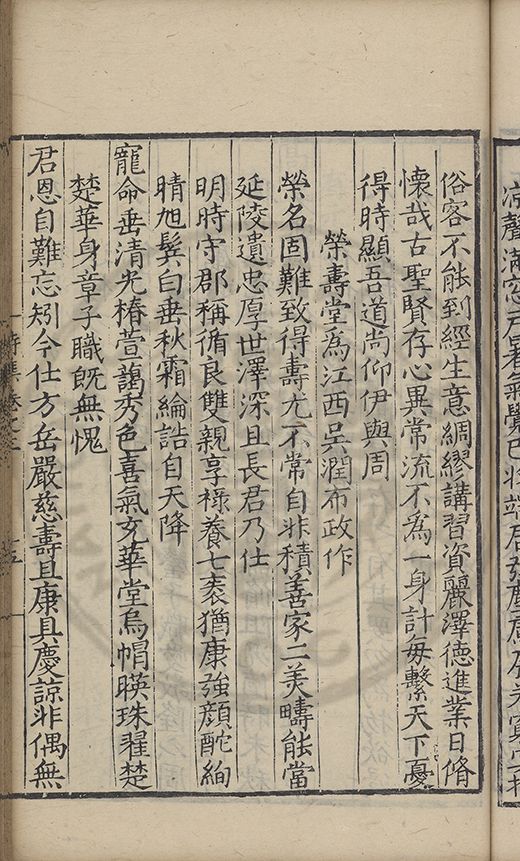 聲滿窓戶暑氣覺已將端居
俗客不能到經生意綢繆講習資麗澤德進業日脩
懷哉古聖賢存心異常流不為一身計每繫天下憂
得時顯吾道尚仰伊與周
榮壽堂為江西吳潤布政作
榮名固難致得壽尤不常自非積善家二美疇能當
延陵遺忠厚世澤深且長君乃仕
明時守郡稱循良雙親享祿養七袠猶康強顏酡絢
晴旭鬢白垂秋霜綸誥自天降
寵命垂清光椿萱藹秀色喜氣充華堂烏帽暎珠翟楚
楚華身章子職旣無愧
君恩自難忘矧今仕方岳嚴慈壽且康具慶諒非偶無